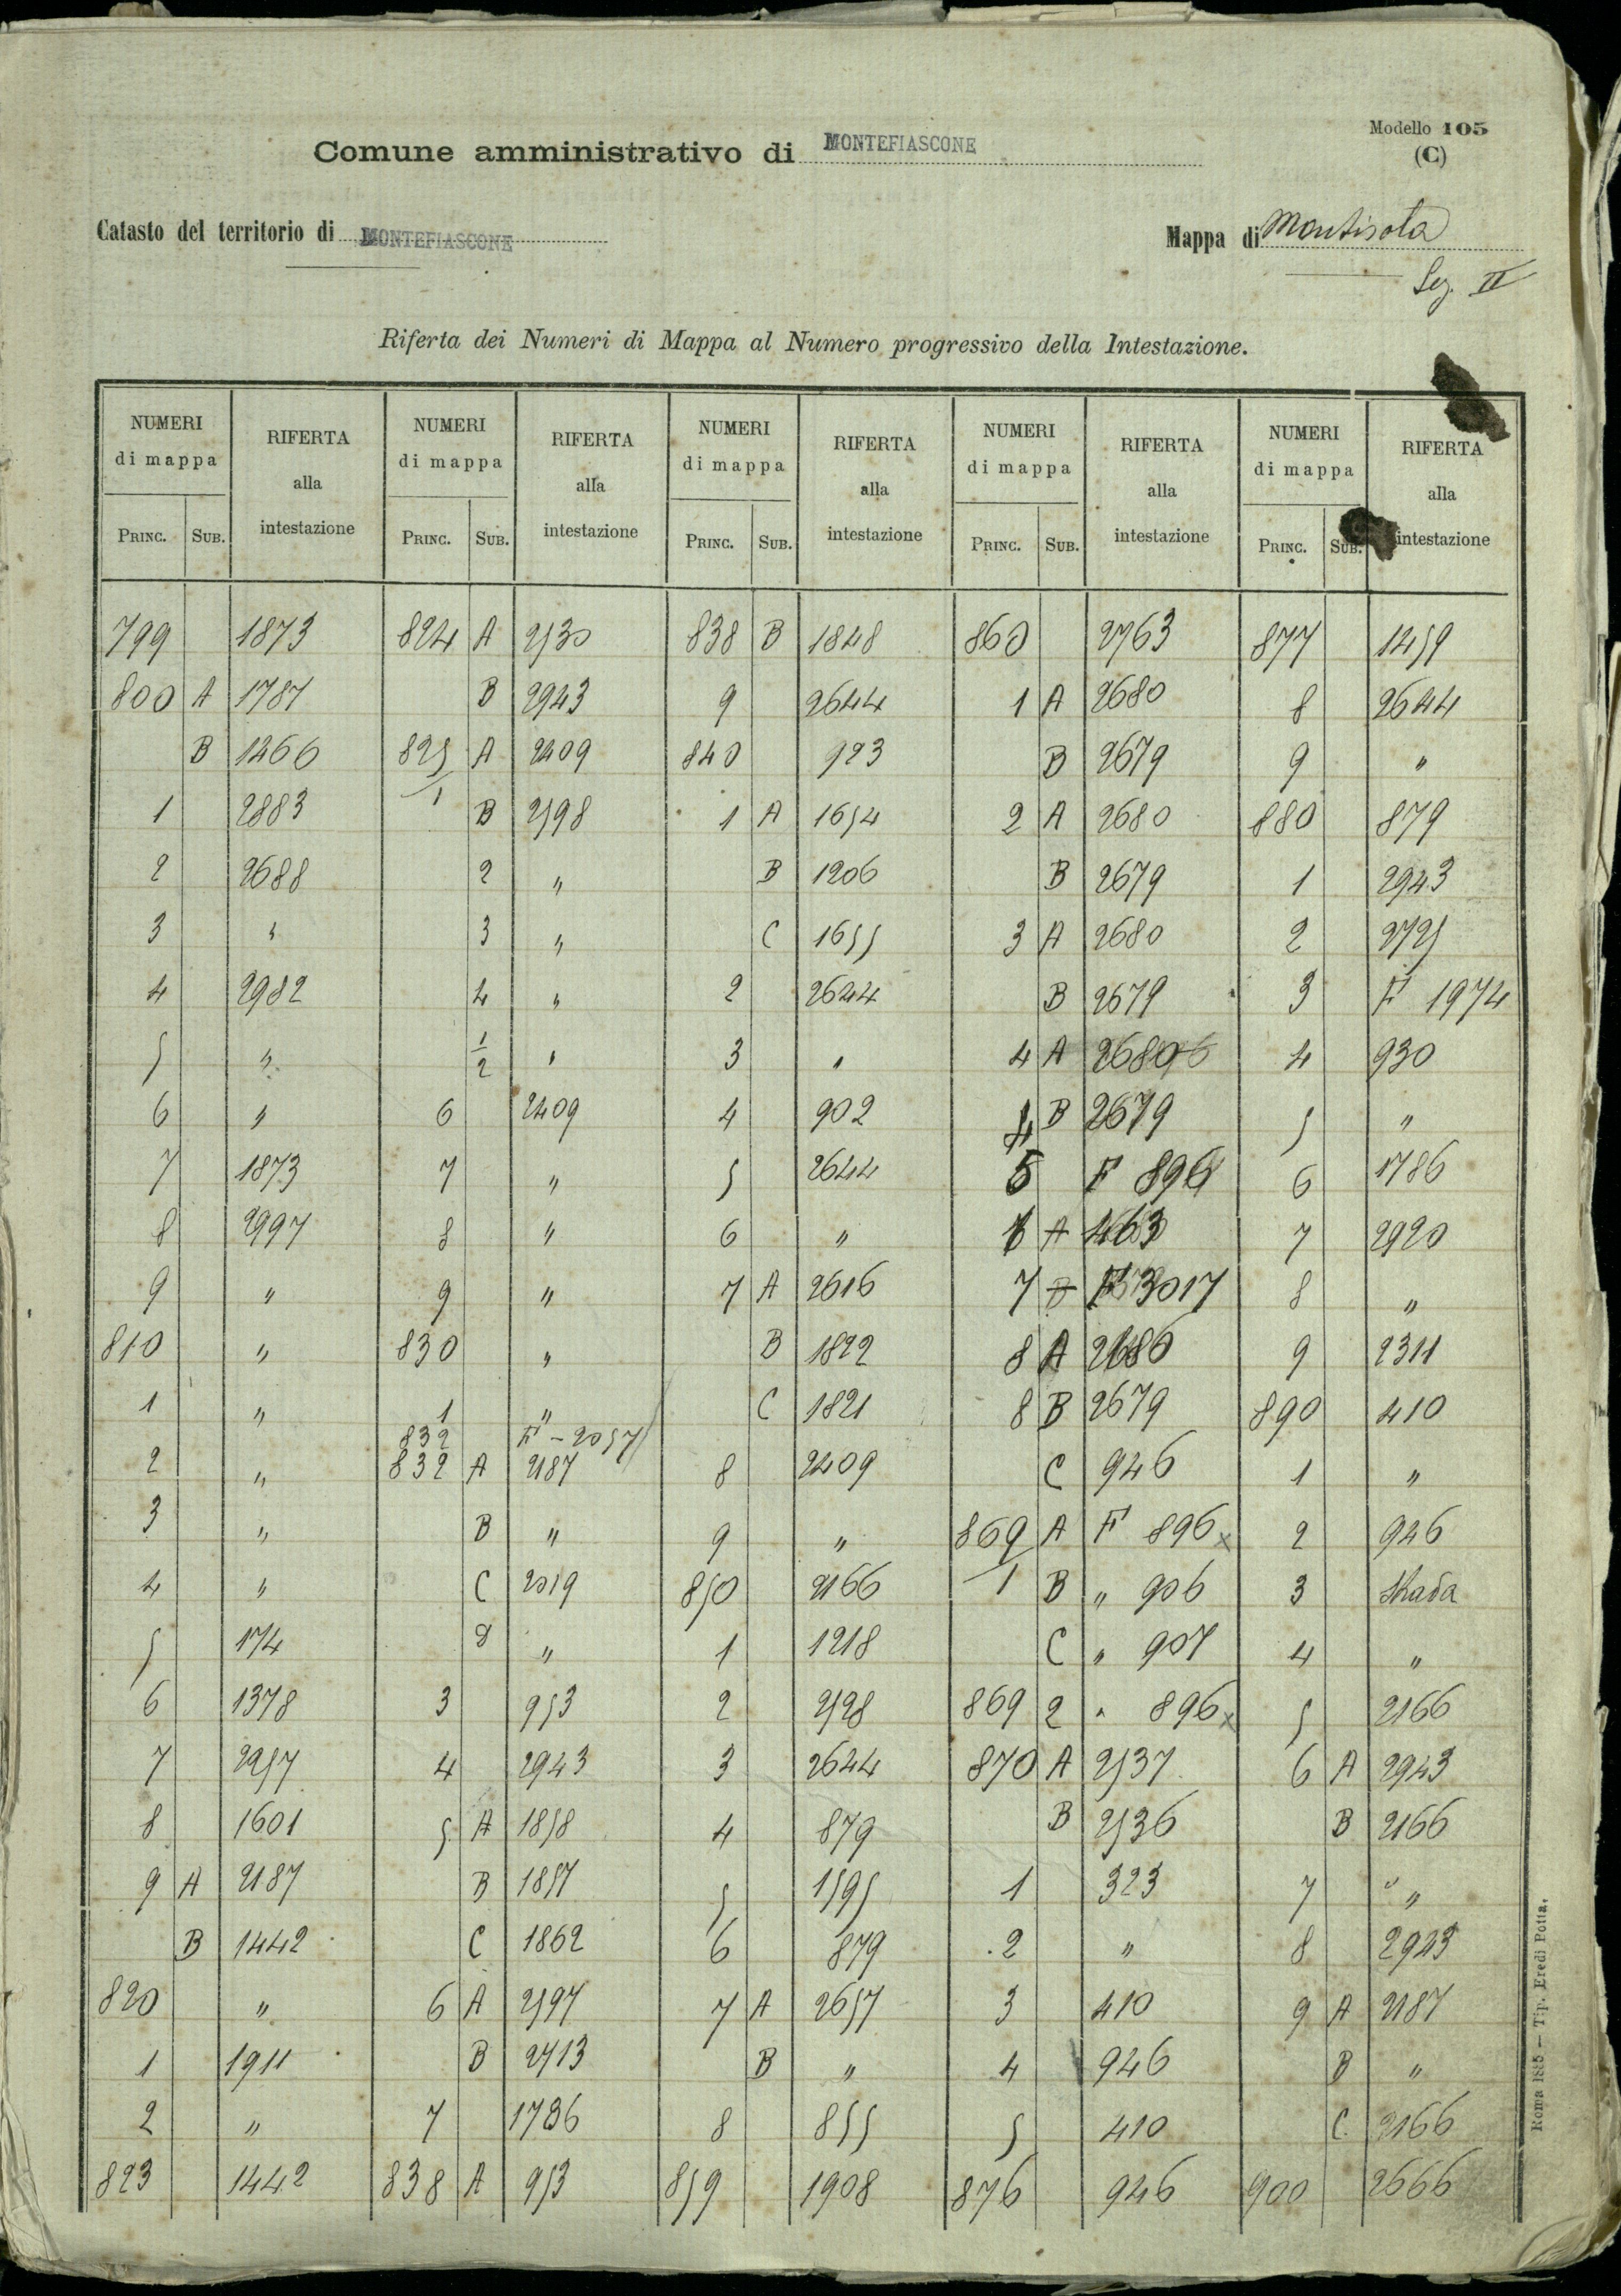 Modello 105
(C)
Comune amministrativo di MONTEFIASCONE
Catasto del territorio di MONTEFIASCONE
Mappa di Montisola
Sez. II
Riferta dei Numeri di Mappa al Numero progressivo della Intestazione.
NUMERI di mappa RIFERTA alla intestazione NUMERI di mappa RIFERTA alla intestazione NUMERI di mappa RIFERTA alla intestazione NUMERI di mappa RIFERTA alla intestazione NUMERI di mappa RIFERTA alla intestazione
PRINC. SUB. PRINC. SUB. PRINC. SUB. PRINC. SUB. PRINC. SUB.
799 1873 824 A 2530 838 B 1848 860 2763 877 1459
800 A 1787 B 2943 9 2644 1 A 2680 8 2644
B 1466 825/1 A 2409 840 923 B 2679 9 "
1 2883 B 2598 1 A 1654 2 A 2680 880 879
2 2688 2 " B 1206 B 2679 1 2943
3 " 3 " C 1655 3 A 2680 2 2725
4 2982 4 " 2 2644 B 2679 3 F 1974
5 " 1/2 " 3 " 4 A 2680 4 930
6 " 6 2409 4 902 4 B 2679 5 "
7 1873 7 " 5 2644 5 F 896 6 1786
8 2997 8 " 6 " 6 A 463 7 2920
9 " 9 " 7 A 2616 7 F 3017 8 "
810 " 830 " B 1822 8 A 2680 9 2311
1 " 1 " C 1821 8 B 2679 890 410
832 F - 2057
2 " 832 A 2187 8 2409 C 946 1 "
3 " B " 9 " 869/1 A F 896 x 2 946
4 " C 2019 850 2166 B " 906 3 Strada
5 174 D " 1 1218 C " 907 4 "
6 1378 3 953 2 2528 869 2 " 896 x 5 2166
7 2957 4 2943 3 2644 870 A 2537 6 A 2943
8 1601 5 A 1858 4 879 B 2536 B 2166
9 A 2187 B 1857 5 1595 1 323 7 "
B 1442 C 1862 6 879 2 " 8 2943
820 " 6 A 2597 7 A 2657 3 410 9 A 2187
1 1911 B 2713 B " 4 946 B "
2 " 7 1786 8 855 5 410 C 2166
823 1442 838 A 953 859 1908 876 946 900 2666
Roma 1885 — Tip. Eredi Botta.